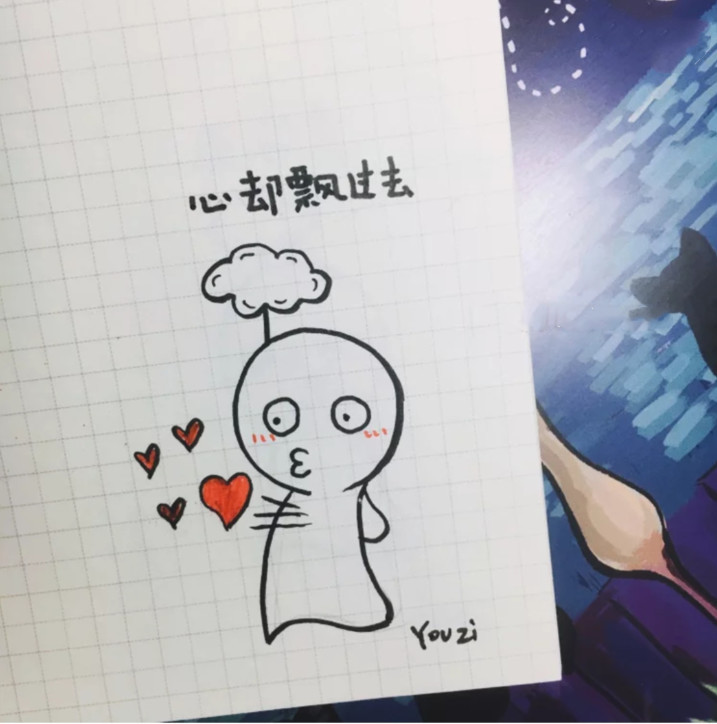 心却飘过去
Youzi